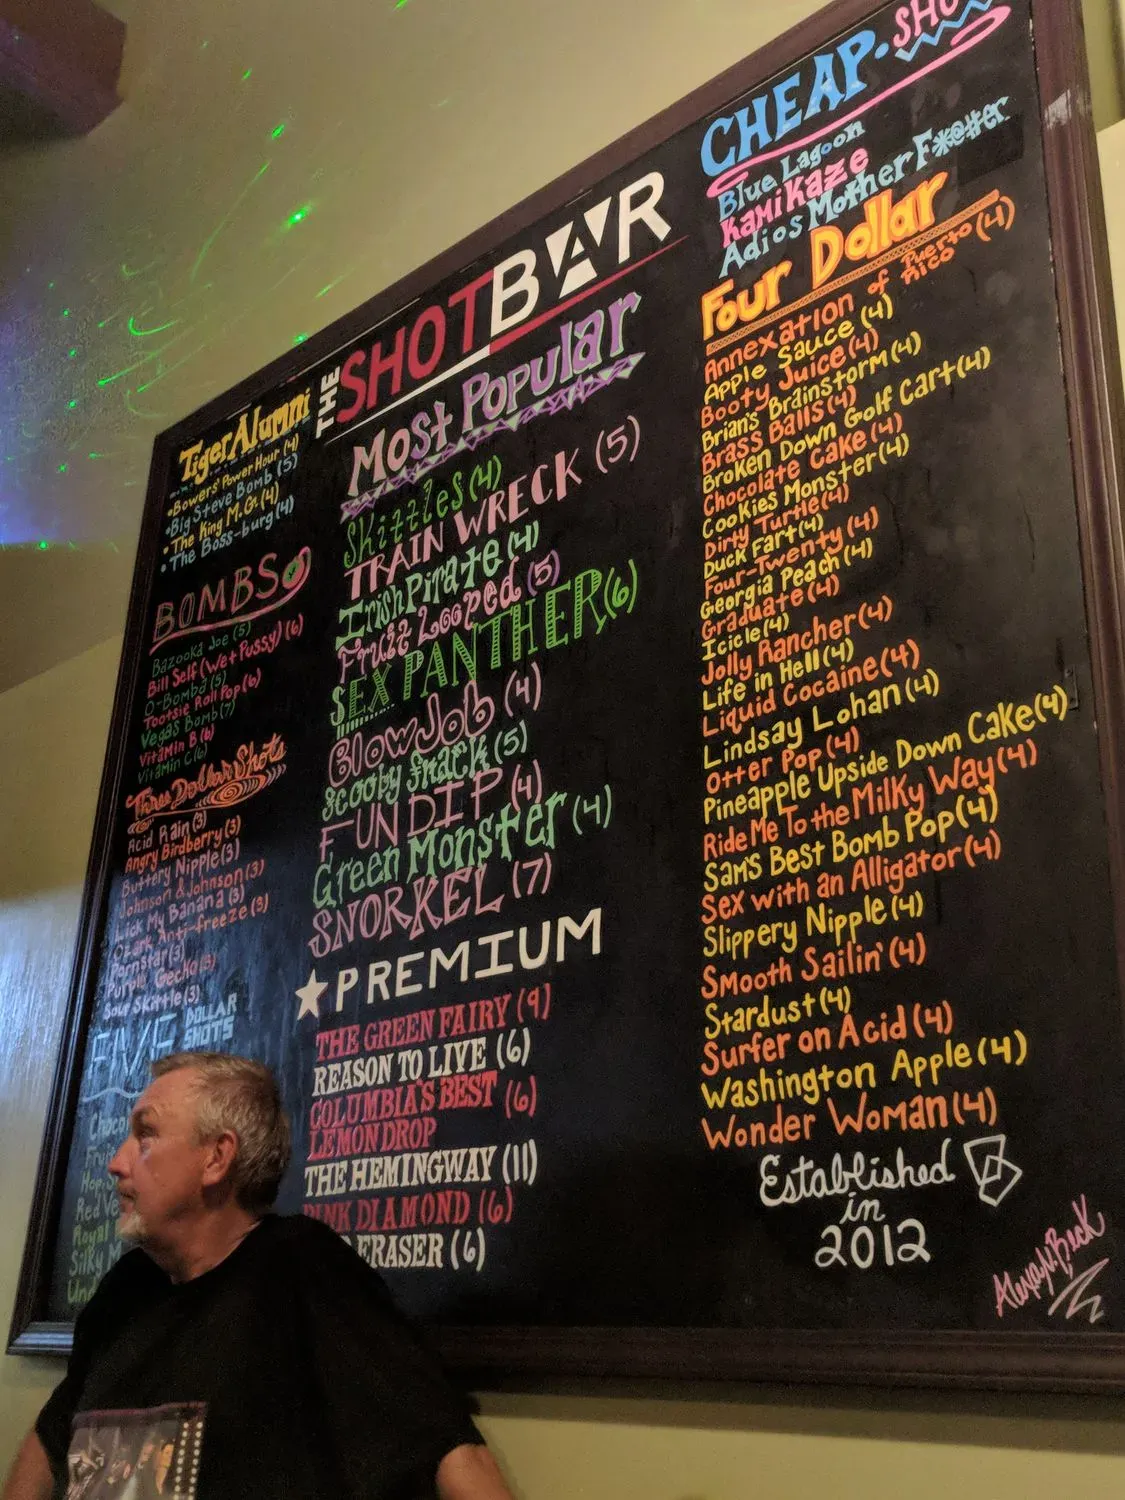 Tiger Alumni
•Bowers' Power Hour (4)
•Big Steve Bomb (5)
•The King M.G. (4)
•The Boss-burg (4)
BOMBS
Bazooka Joe (5)
Bill Self (Wet Pussy) (6)
O-Bomba (5)
Tootsie Roll Pop (6)
Vegas Bomb (7)
Vitamin B (6)
Vitamin C (6)
Three Dollar Shots
Acid Rain (3)
Angry Birdberry (3)
Buttery Nipple (3)
Johnson & Johnson (3)
Lick My Banana (3)
Ozark Anti-freeze (3)
Pornstar (3)
Purple Gecko (3)
Sour Skittle (3)
FIVE DOLLAR
SHOTS
Red
Royal
Silky
THE SHOTBAR
Most Popular
Skittles (4)
TRAIN WRECK (5)
Irish Pirate (4)
Fruit Looped (5)
SEX PANTHER (6)
Blow Job (4)
Scooby Snack (5)
FUN DIP (4)
Green Monster (4)
SNORKEL (7)
PREMIUM
THE GREEN FAIRY (9)
REASON TO LIVE (6)
COLUMBIA'S BEST (6)
LEMON DROP
THE HEMINGWAY (11)
PINK DIAMOND (6)
ERASER (6)
CHEAP.
Blue Lagoon
Kamikaze
Adios Mother F*@#er
Four Dollar
Annexation of Puerto Rico (4)
Apple Sauce (4)
Booty Juice (4)
Brian's Brainstorm (4)
Brass Balls (4)
Broken Down Golf Cart (4)
Chocolate Cake (4)
Cookies Monster (4)
Dirty Turtle (4)
Duck Fart (4)
Four-Twenty (4)
Georgia Peach (4)
Graduate (4)
Icicle (4)
Jolly Rancher (4)
Life in Hell (4)
Liquid Cocaine (4)
Lindsay Lohan (4)
Otter Pop (4)
Pineapple Upside Down Cake (4)
Ride Me To the Milky Way (4)
Sam's Best Bomb Pop (4)
Sex with an Alligator (4)
Slippery Nipple (4)
Smooth Sailin' (4)
Stardust (4)
Surfer on Acid (4)
Washington Apple (4)
Wonder Woman (4)
Established
in
2012